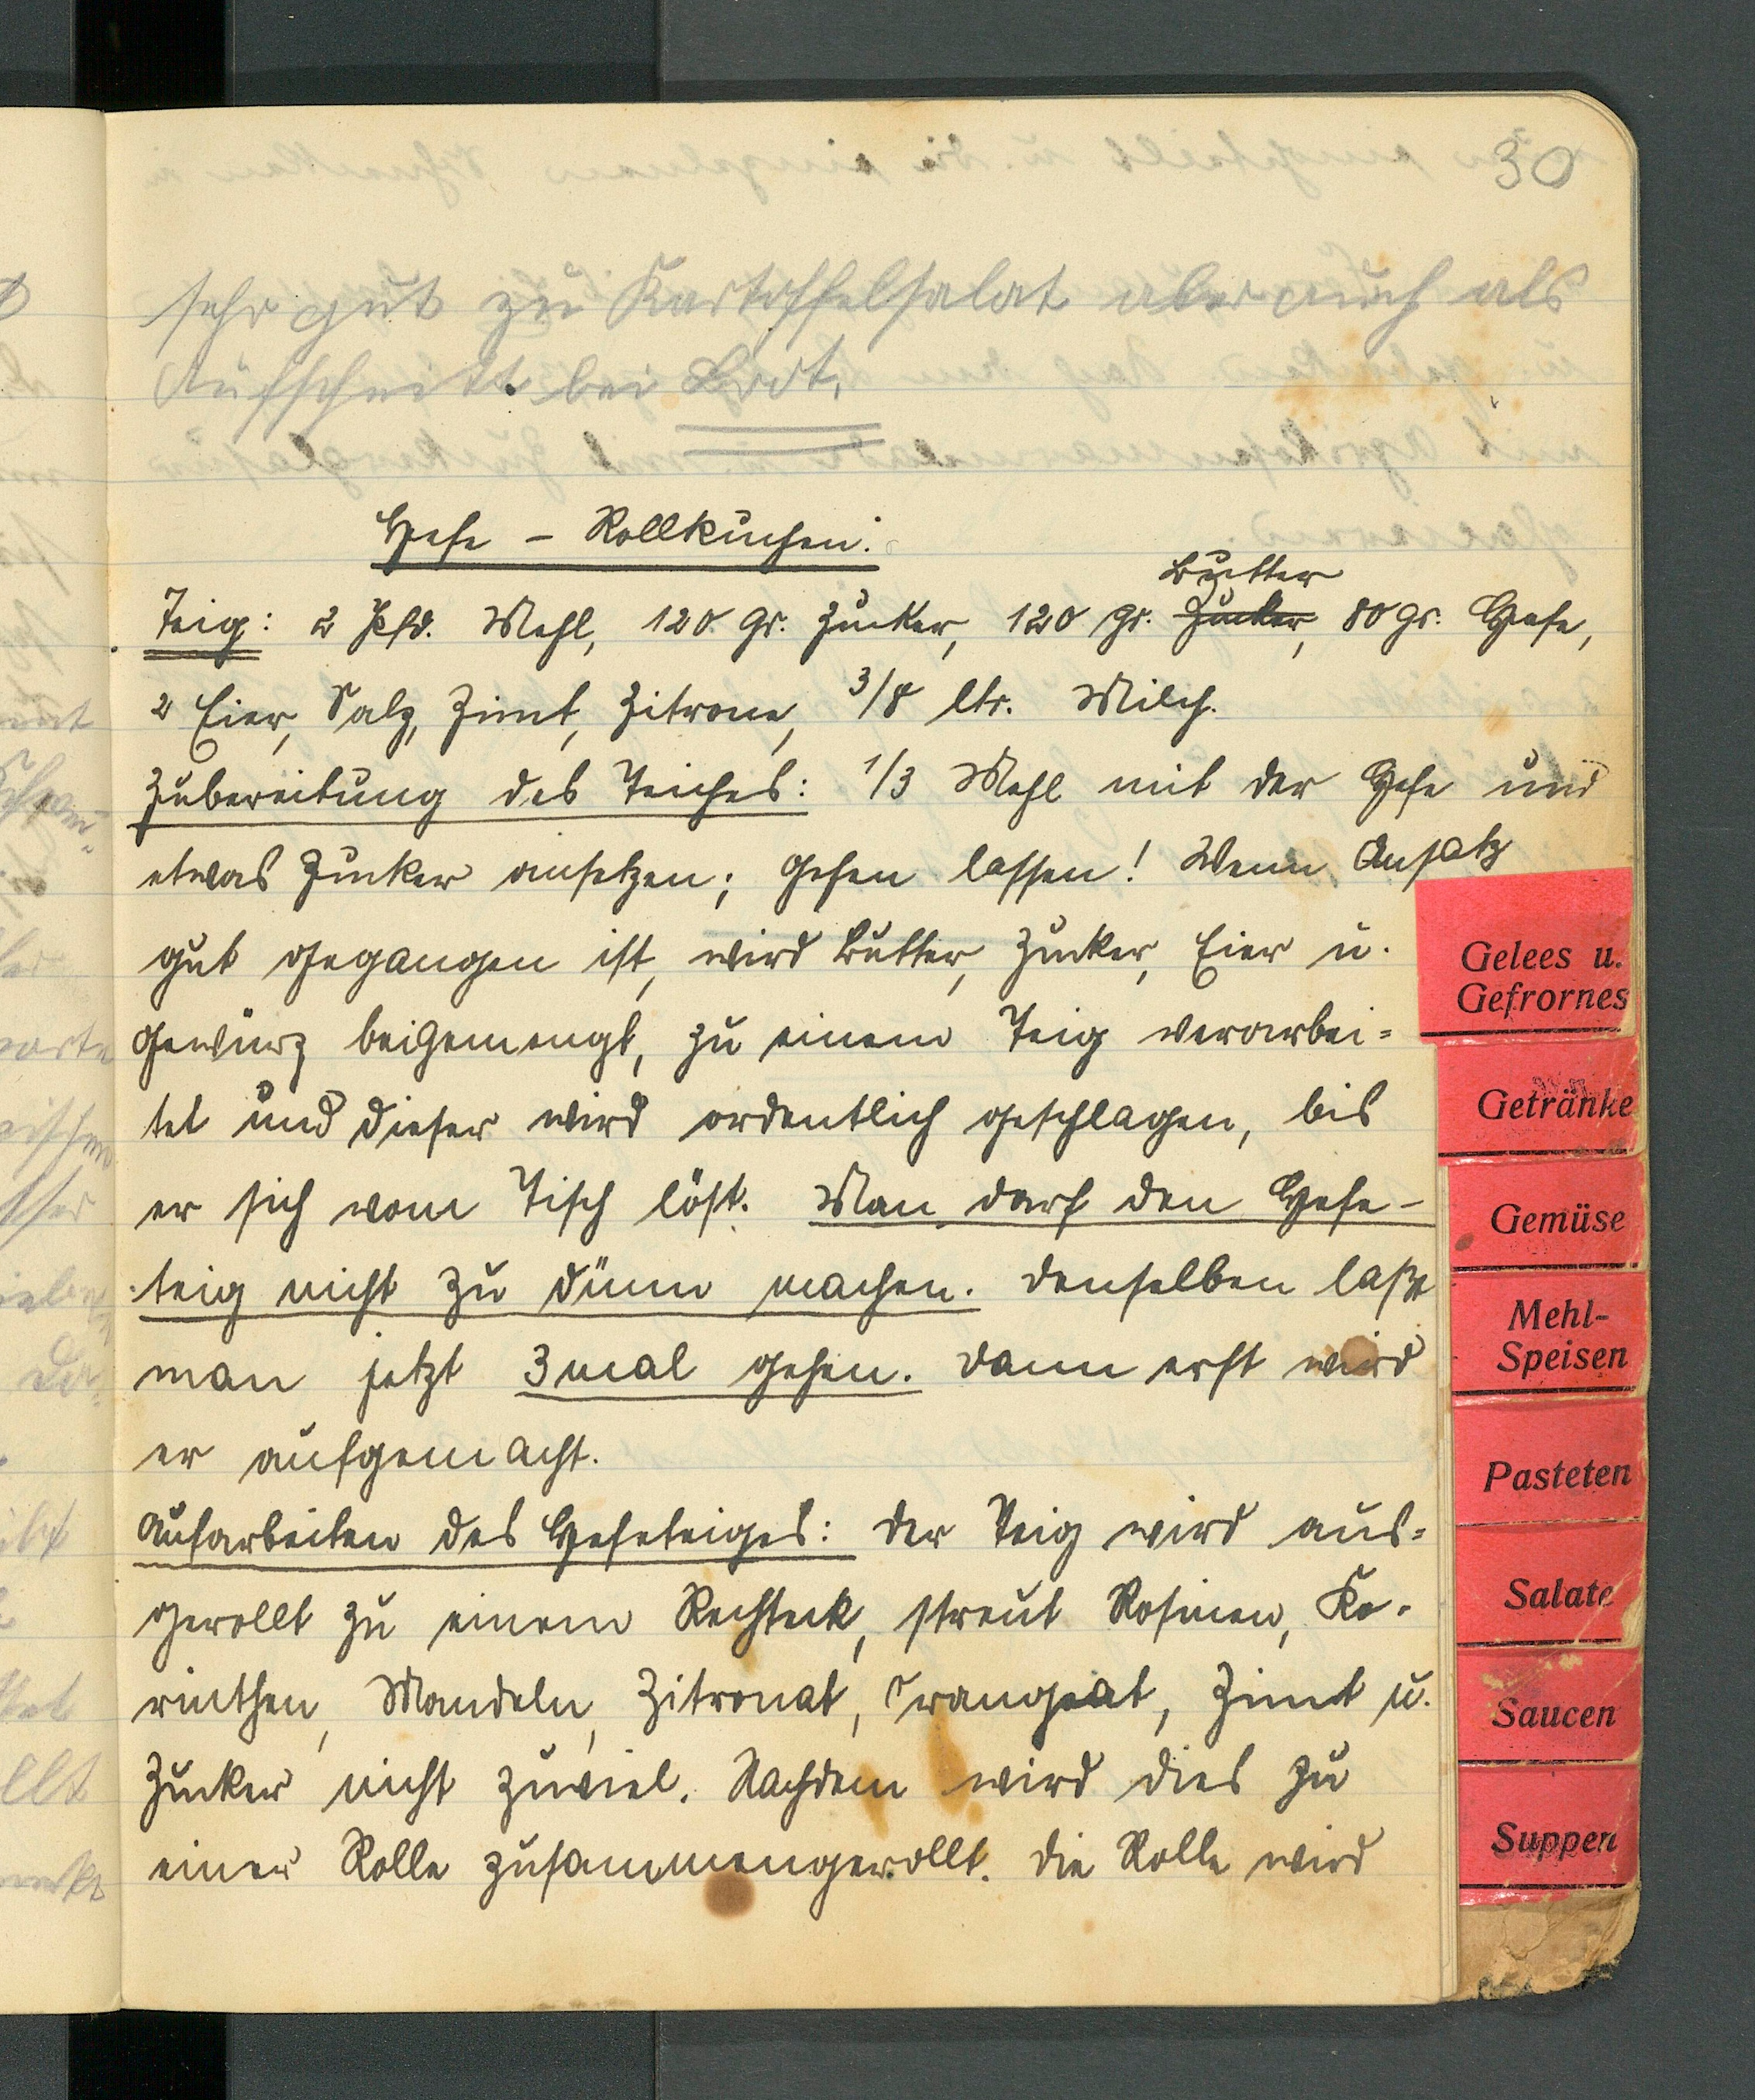 30
sehr gut zu Kartoffelsalat aber auch als
Aufschnitt bei Brot.
Hefe - Rollkuchen:
Butter
Teig: 2 Pfd. Mehl, 120 gr. Zucker, 120 gr. Zucker, 80 gr. Hefe,
2 Eier, Salz, Zimt, Zitrone, 3/8 ltr. Milch.
Zubereitung des Teiches: 1/3 Mehl mit der Hefe und
etwas Zucker ansetzen; gehen lassen! Wenn Ansatz
gut gegangen ist, wird Butter, Zucker, Eier u.
Gewürz beigemengt, zu einem Teig verarbei=
tet und dieser wird ordentlich geschlagen, bis
er sich vom Tisch löst. Man darf den Hefe-
teig nicht zu dünn machen. Denselben läßt
man jetzt 3 mal gehen. Dann erst wird
er aufgemacht.
Aufarbeiten des Hefeteiges: Der Teig wird aus=
gerollt zu einem Rechteck, streut Rosinen, Ko-
rinthen, Mandeln, Zitronat, Orangeat, Zimt u.
Zucker nicht zuviel. Nachdem wird dies zu
einer Rolle zusammengerollt. Die Rolle wird
Gelees u.
Gefrornes
Getränke
Gemüse
Mehl-
Speisen
Pasteten
Salate
Saucen
Suppen